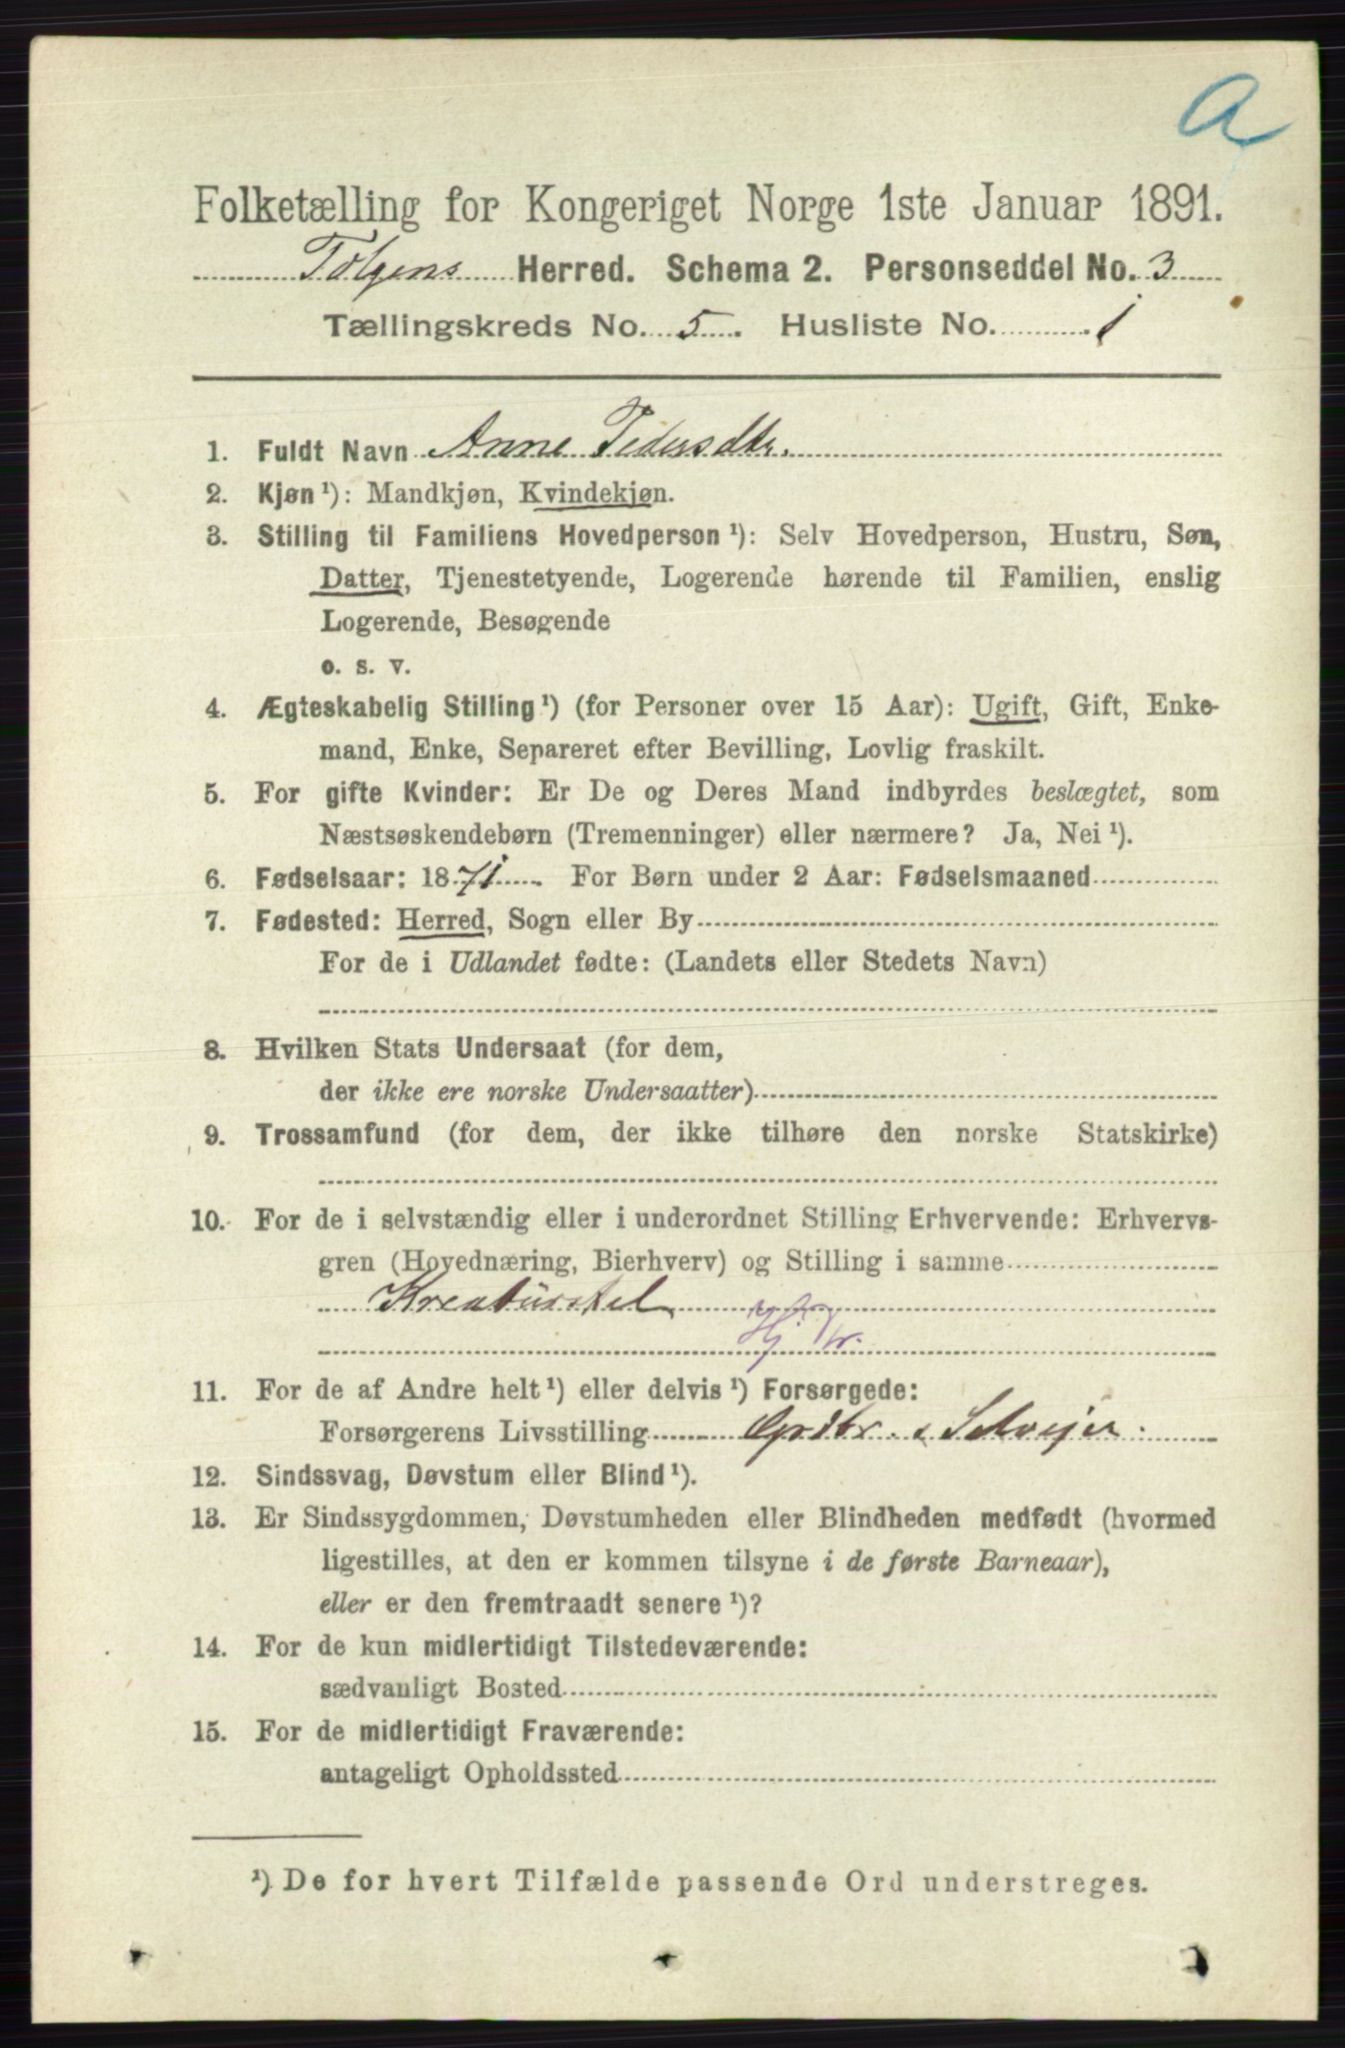 a
Folketælling for Kongeriget Norge 1ste Januar 1891.
Tolgens Herred. Schema 2. Personseddel No. 3
Tællingskreds No. 5. Husliste No. 1
1. Fuldt Navn Anne Pedersdtr.
2. Kjøn ¹): Mandkjøn, Kvindekjøn.
3. Stilling til Familiens Hovedperson ¹): Selv Hovedperson, Hustru, Søn,
Datter, Tjenestetyende, Logerende hørende til Familien, enslig
Logerende, Besøgende
o. s. v.
4. Ægteskabelig Stilling ¹) (for Personer over 15 Aar): Ugift, Gift, Enke-
mand, Enke, Separeret efter Bevilling, Lovlig fraskilt.
5. For gifte Kvinder: Er De og Deres Mand indbyrdes beslægtet, som
Næstsøskendebørn (Tremenninger) eller nærmere? Ja, Nei ¹).
6. Fødselsaar: 1871. For Børn under 2 Aar: Fødselsmaaned
7. Fødested: Herred, Sogn eller By
For de i Udlandet fødte: (Landets eller Stedets Navn)
8. Hvilken Stats Undersaat (for dem,
der ikke ere norske Undersaatter)
9. Trossamfund (for dem, der ikke tilhøre den norske Statskirke)
10. For de i selvstændig eller i underordnet Stilling Erhvervende: Erhvervs-
gren (Hovednæring, Bierhverv) og Stilling i samme
Kreaturstel
11. For de af Andre helt ¹) eller delvis ¹) Forsørgede:
Forsørgerens Livsstilling Grdbr. Selveier.
12. Sindssvag, Døvstum eller Blind ¹).
13. Er Sindssygdommen, Døvstumheden eller Blindheden medfødt (hvormed
ligestilles, at den er kommen tilsyne i de første Barneaar),
eller er den fremtraadt senere ¹)?
14. For de kun midlertidigt Tilstedeværende:
sædvanligt Bosted
15. For de midlertidigt Fraværende:
antageligt Opholdssted
¹) De for hvert Tilfælde passende Ord understreges.